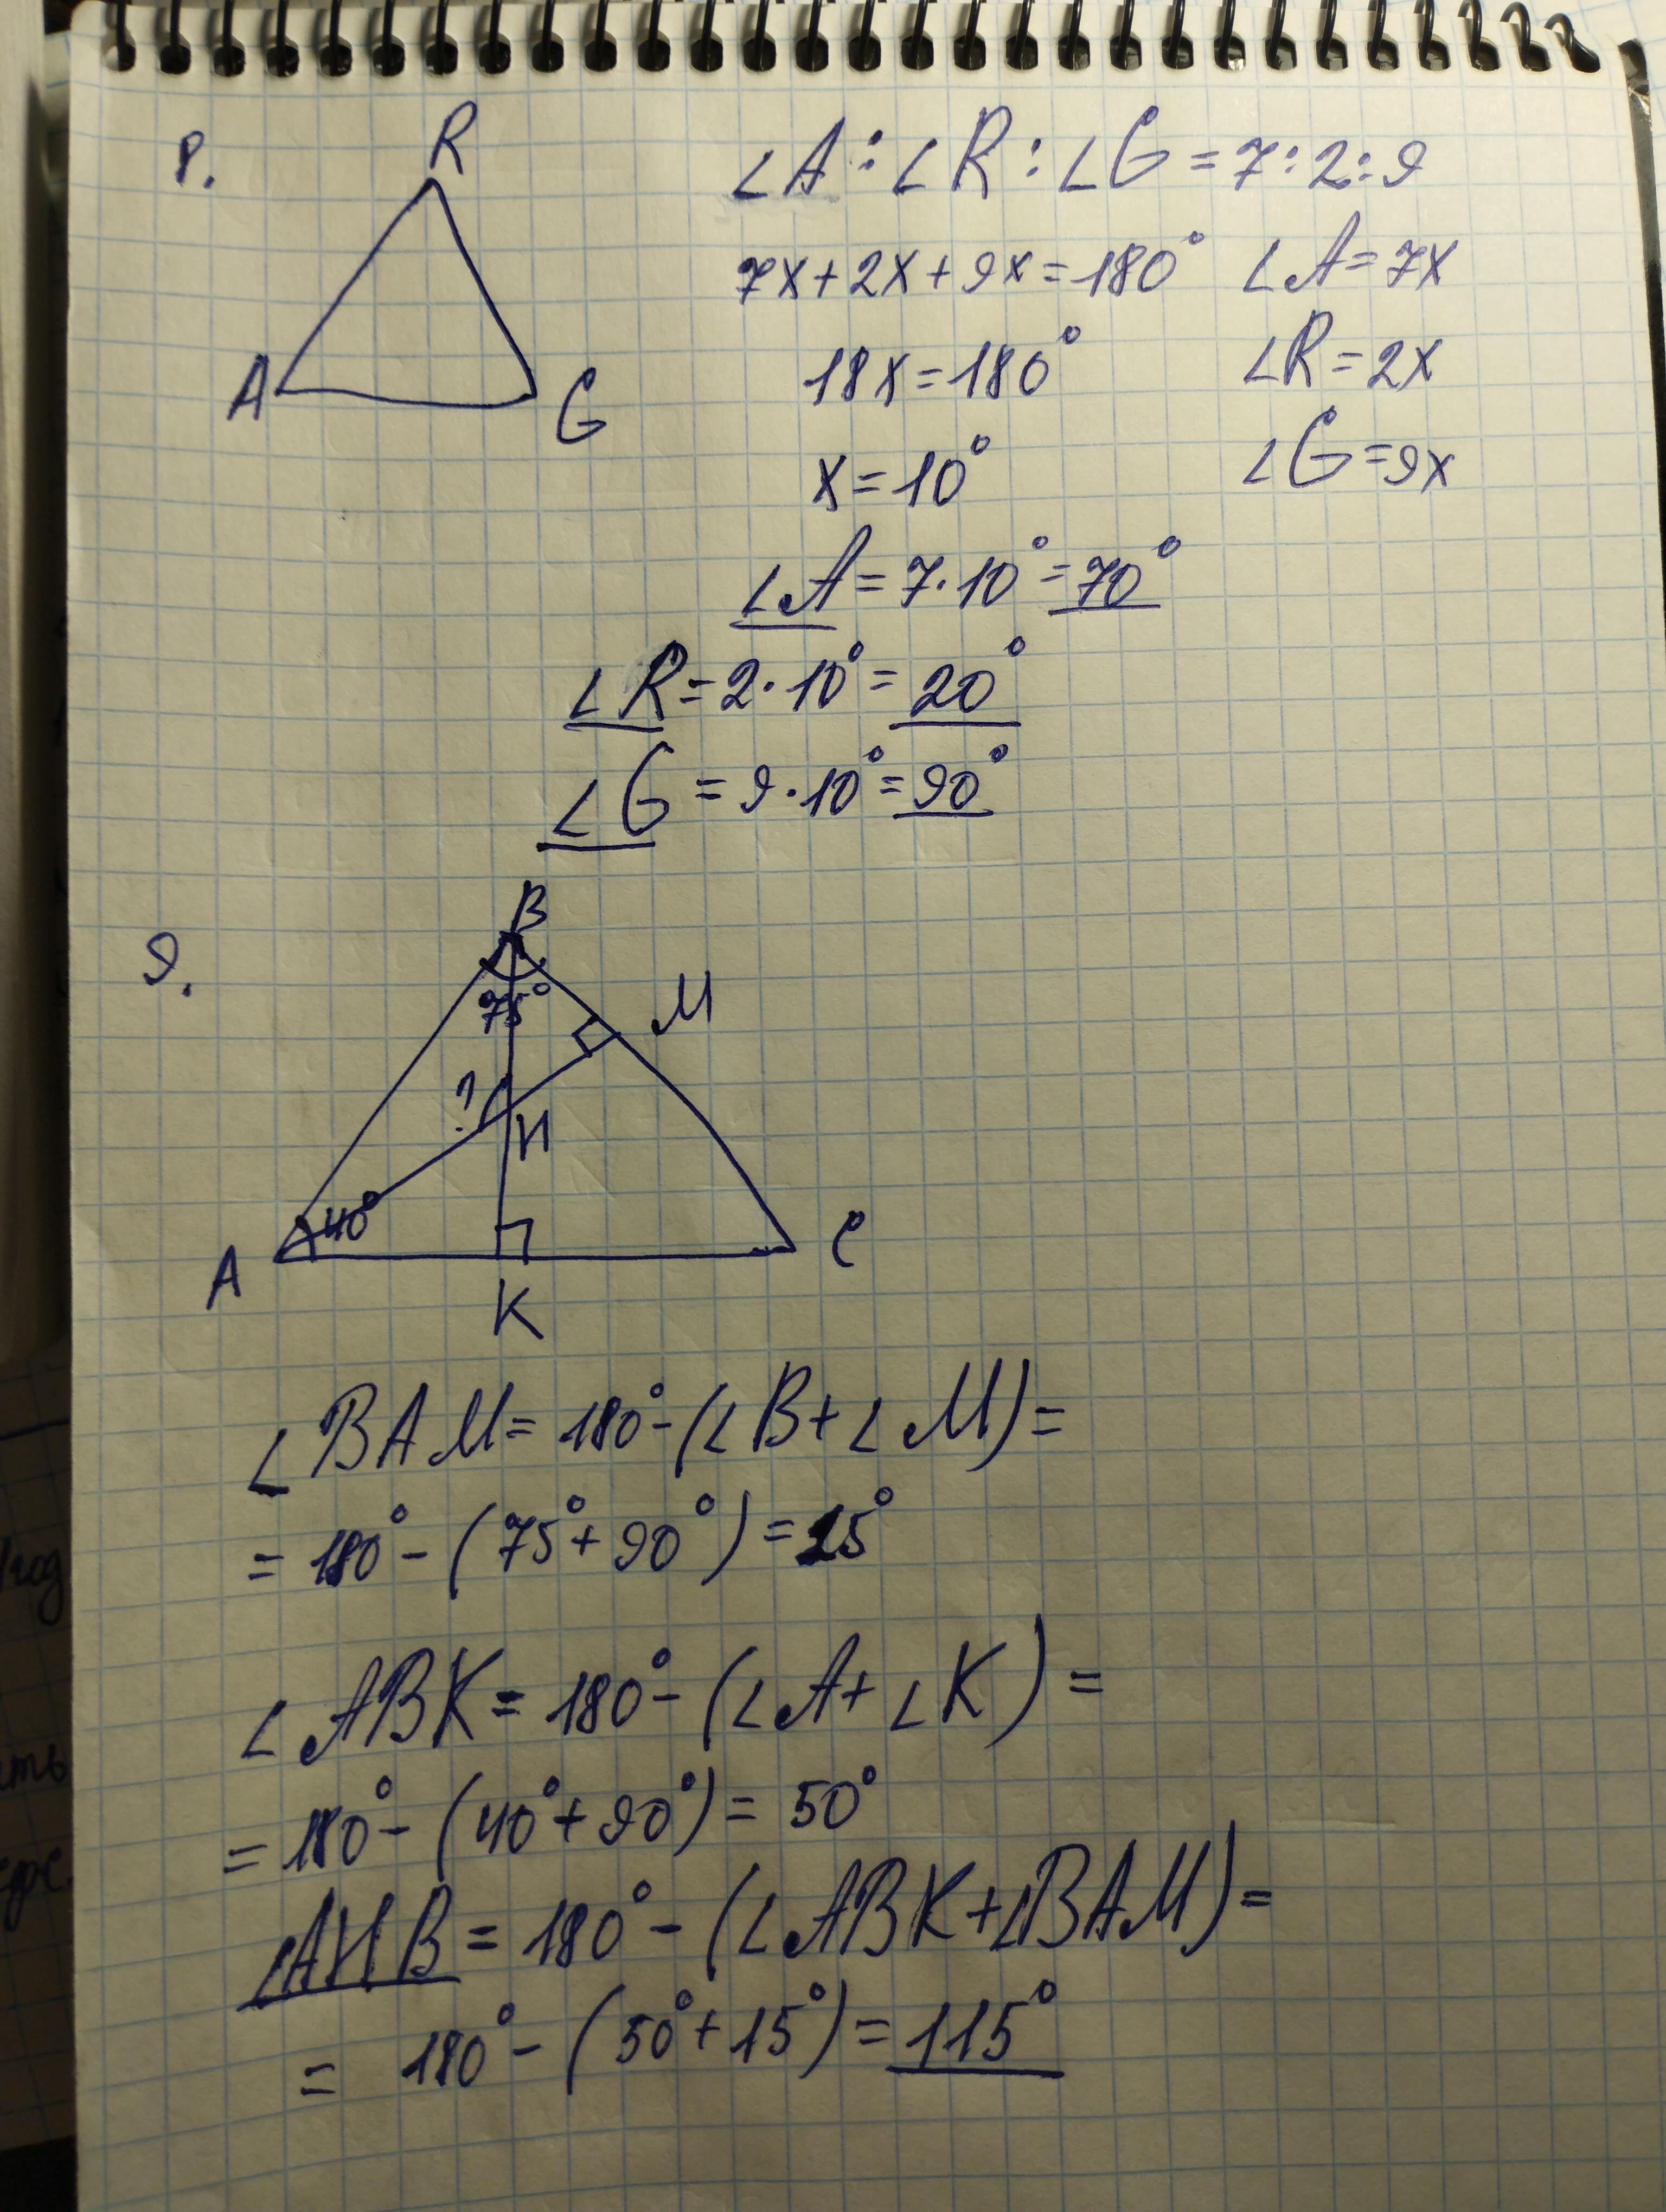 8.
R
A
G
∠A : ∠R : ∠G = 7:2:9
7x + 2x + 9x = 180° ∠A = 7x
18x = 180° ∠R = 2x
x = 10° ∠G = 9x
∠A = 7·10° = 70°
∠R = 2·10° = 20°
∠G = 9·10° = 90°
9.
B
75°
M
?
H
40°
A
C
K
∠BAM = 180° - (∠B + ∠M) =
= 180° - (75° + 90°) = 15°
∠ABK = 180° - (∠A + ∠K) =
= 180° - (40° + 90°) = 50°
∠AHB = 180° - (∠ABK + ∠BAM) =
= 180° - (50° + 15°) = 115°